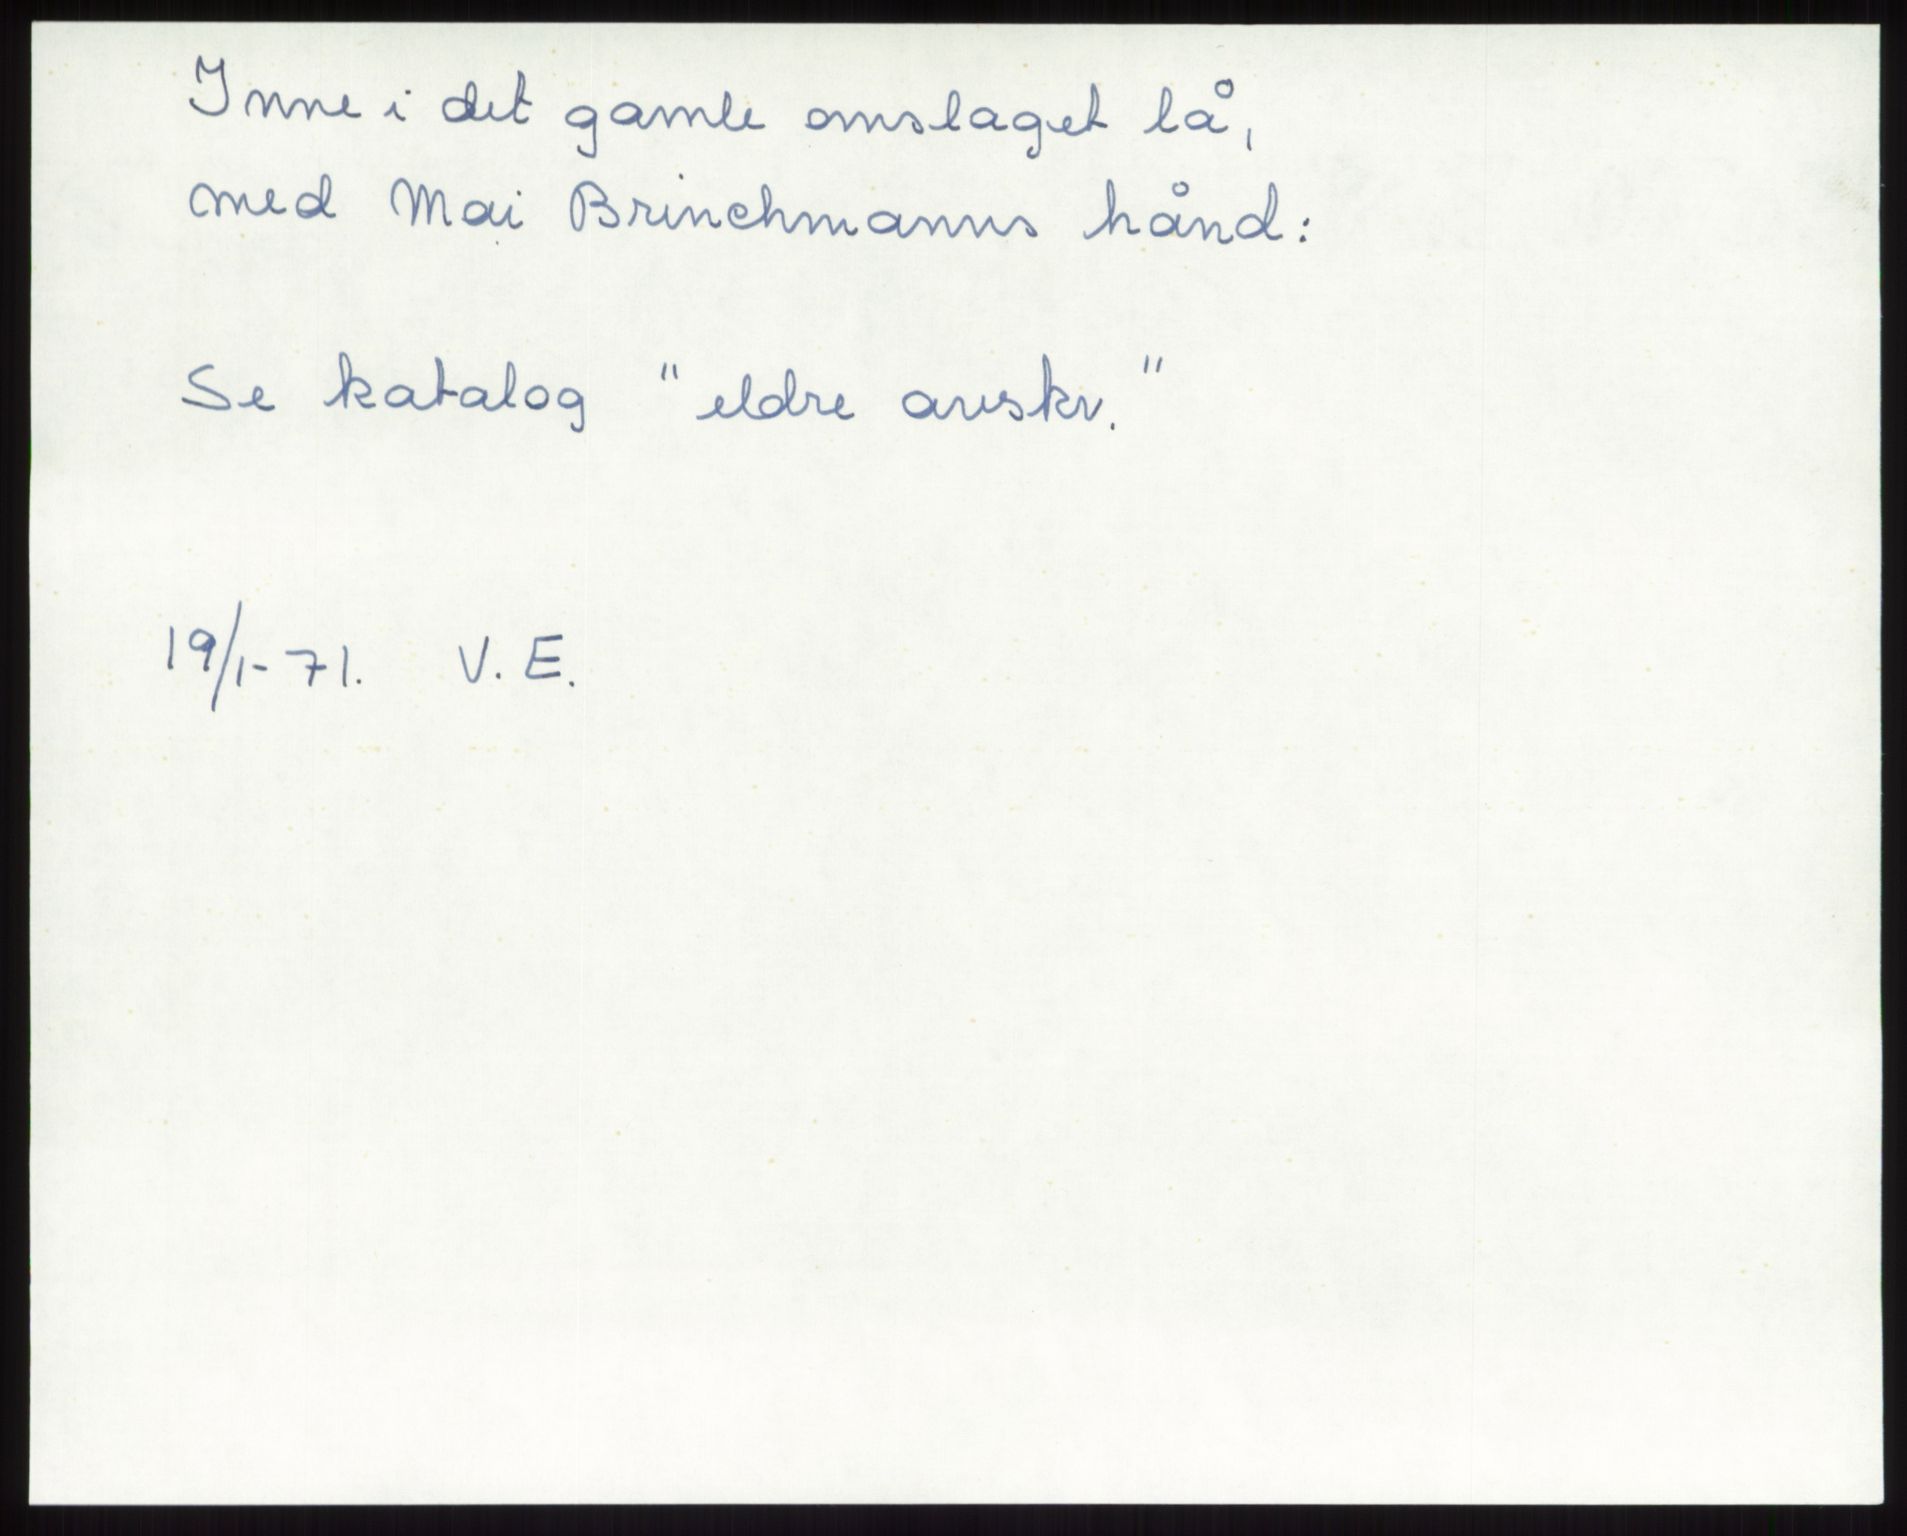 Inne i det gamle omslaget lå,
med Mai Brinchmanns hånd:
Se katalog "eldre avskr."
19/1-71. V. E.